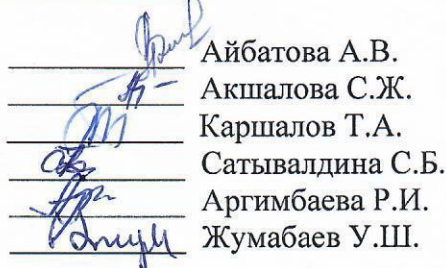 Айбатова А.В.
Акшалова С.Ж.
Каршалов Т.А.
Сатывалдина С.Б.
Аргимбаева Р.И.
Жумабаев У.Ш.